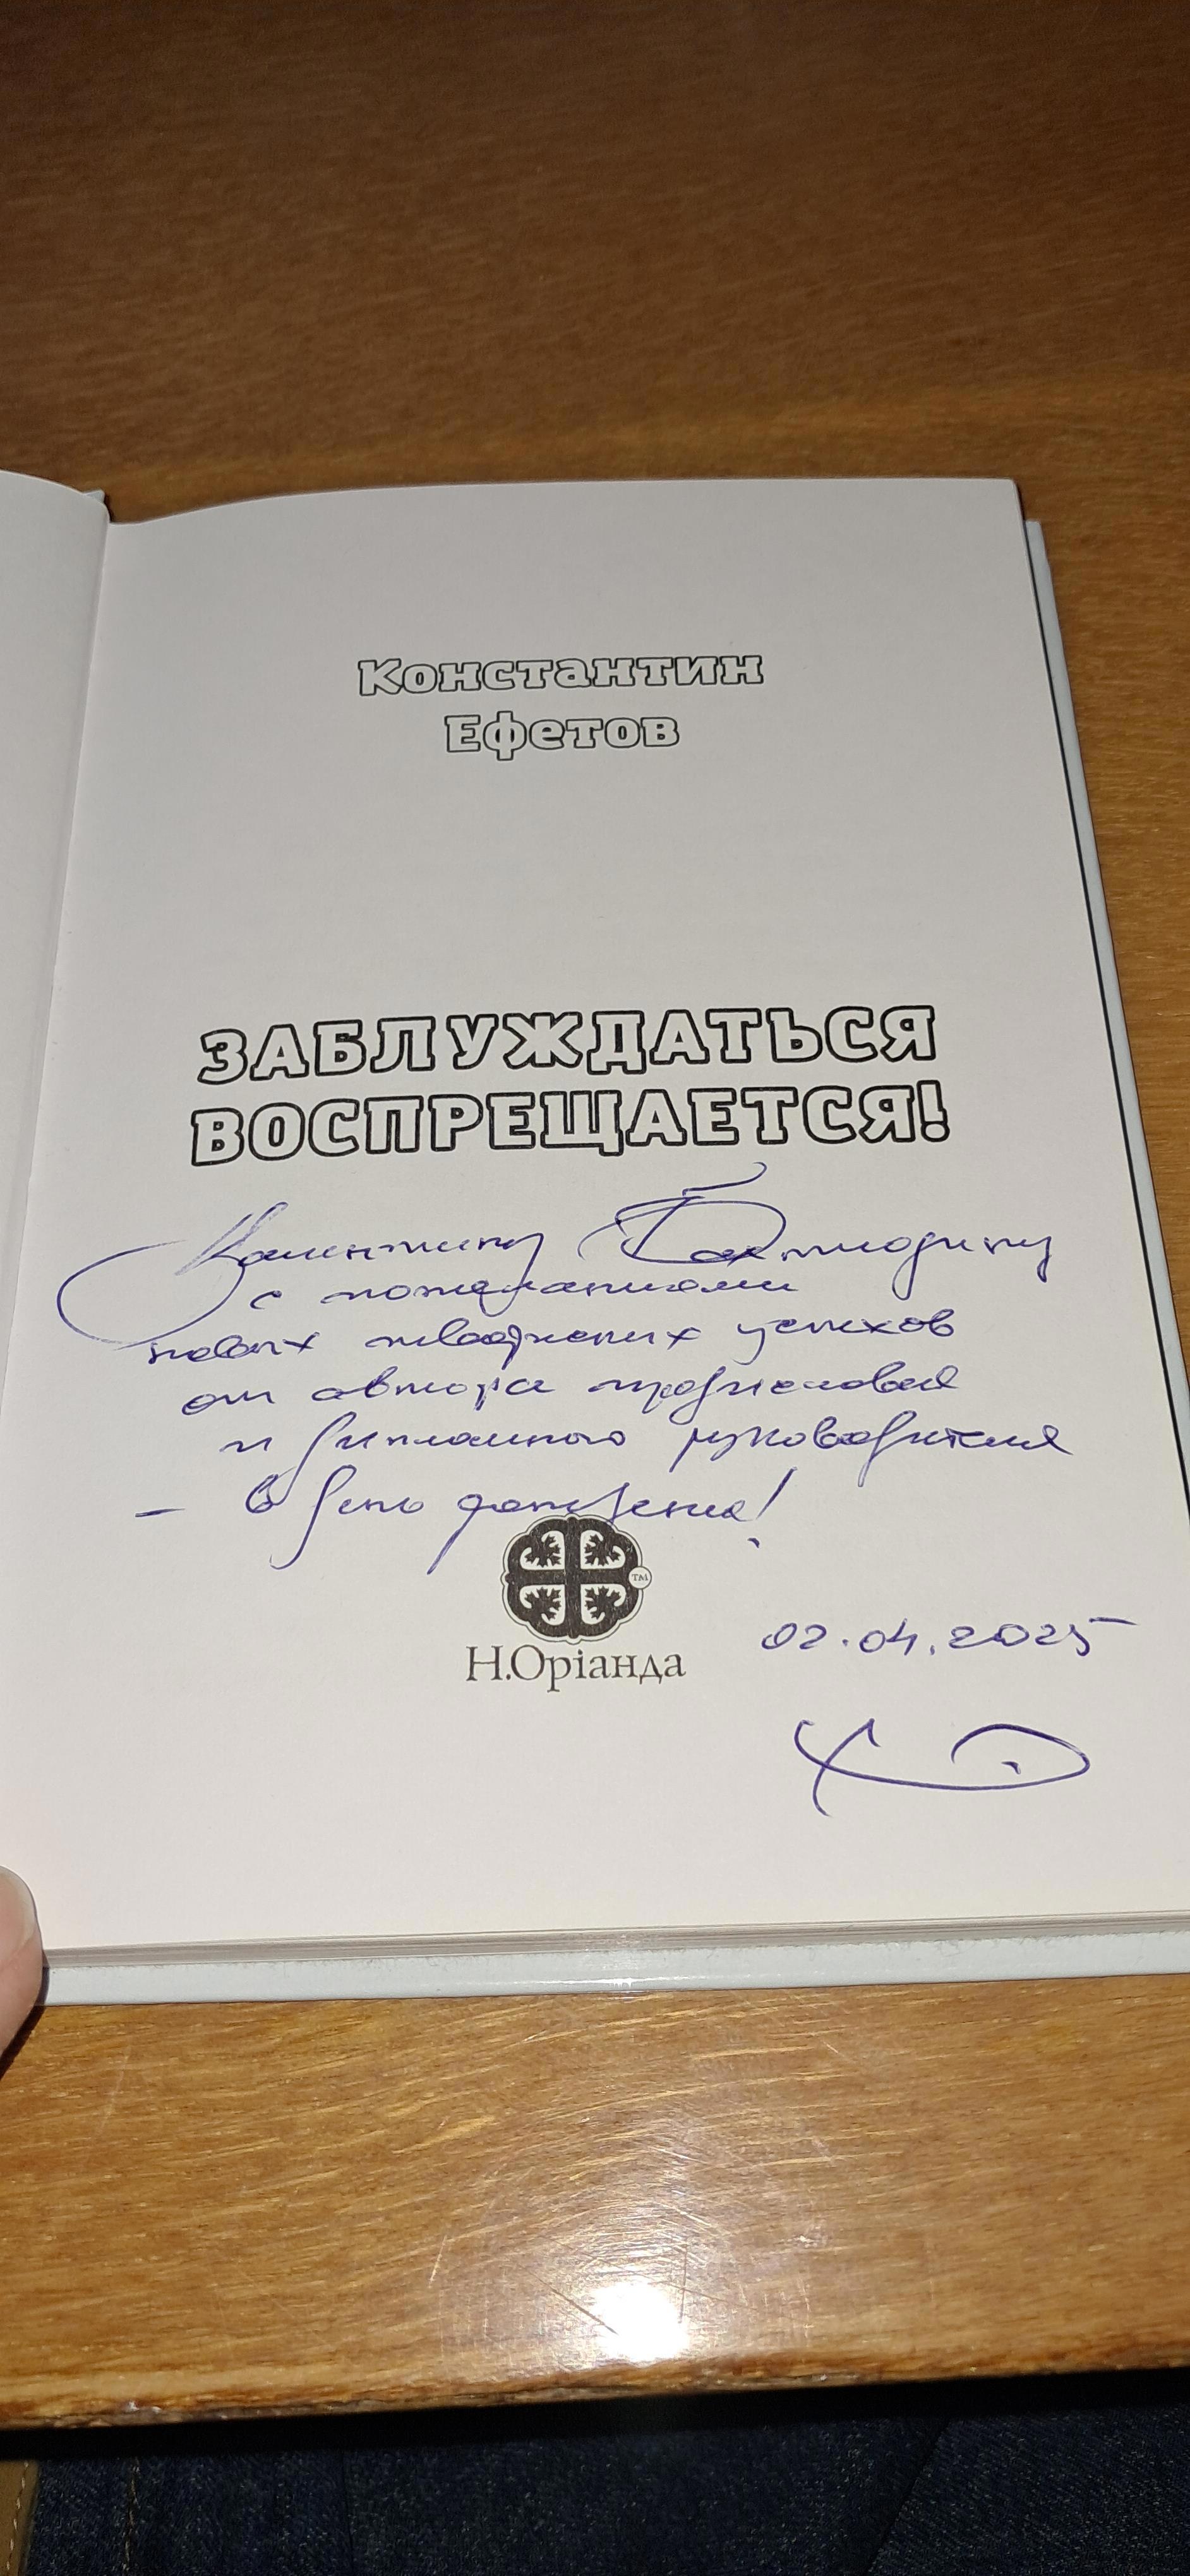 Константин
Ефетов
ЗАБЛУЖДАТЬСЯ
ВОСПРЕЩАЕТСЯ!
Валентину
с пожеланиями
новых творческих успехов
от автора предисловия
и дипломного руководителя
– В день рождения!
TM
Н.Оріанда
02.04.2025